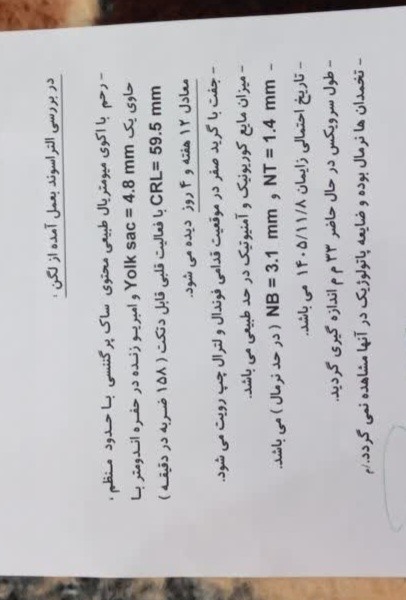 در بررسی التراسوند بعمل آمده از لگن :
- رحم با اکوی میومتریال طبیعی محتوی ساک پرگننسی با حدود منظم ،
حاوی یک Yolk sac = 4.8 mm و امبریو زنده در حفره اندومتر با
CRL= 59.5 mm با فعالیت قلبی قابل دتکت ( ۱۵۸ ضربه در دقیقه )
معادل ۱۲ هفته و ۴ روز دیده می شود.
- جفت با گرید صفر در موقعیت قدامی فوندال و لترال چپ رویت می شود.
- میزان مایع کوریونیک و آمنیوتیک در حد طبیعی می باشد.
- NT = 1.4 mm و NB = 3.1 mm ( در حد نرمال ) می باشد.
- تاریخ احتمالی زایمان ۱۴۰۵/۱۱/۸ می باشد.
- طول سرویکس در حال حاضر ۳۳ م م اندازه گیری گردید.
- تخمدان ها نرمال بوده و ضایعه پاتولوژیک در آنها مشاهده نمی گردد./م